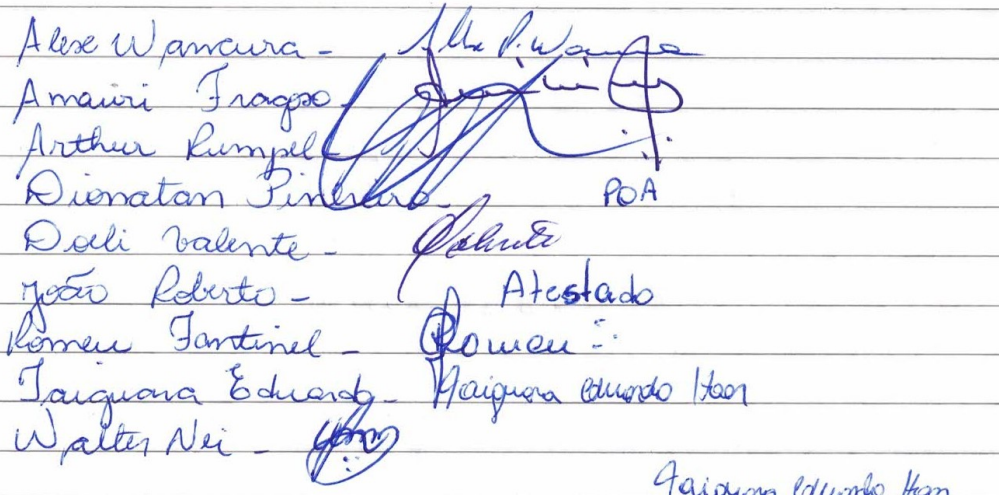 Alexe Wancura - Alex P. Wancura
Amauri Fragoso -
Arthur Rumpel
Dionatan Pinheiro - POA
Doeli Valente - Valente
João Roberto - Atestado
Romeu Fantinel - Romeu
Taiguara Eduardo - Taiguara Eduardo Haan
Walter Nei -
Taiguara Eduardo Haan